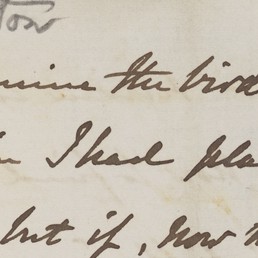 tow
mine the bird
I had pla
but if, now